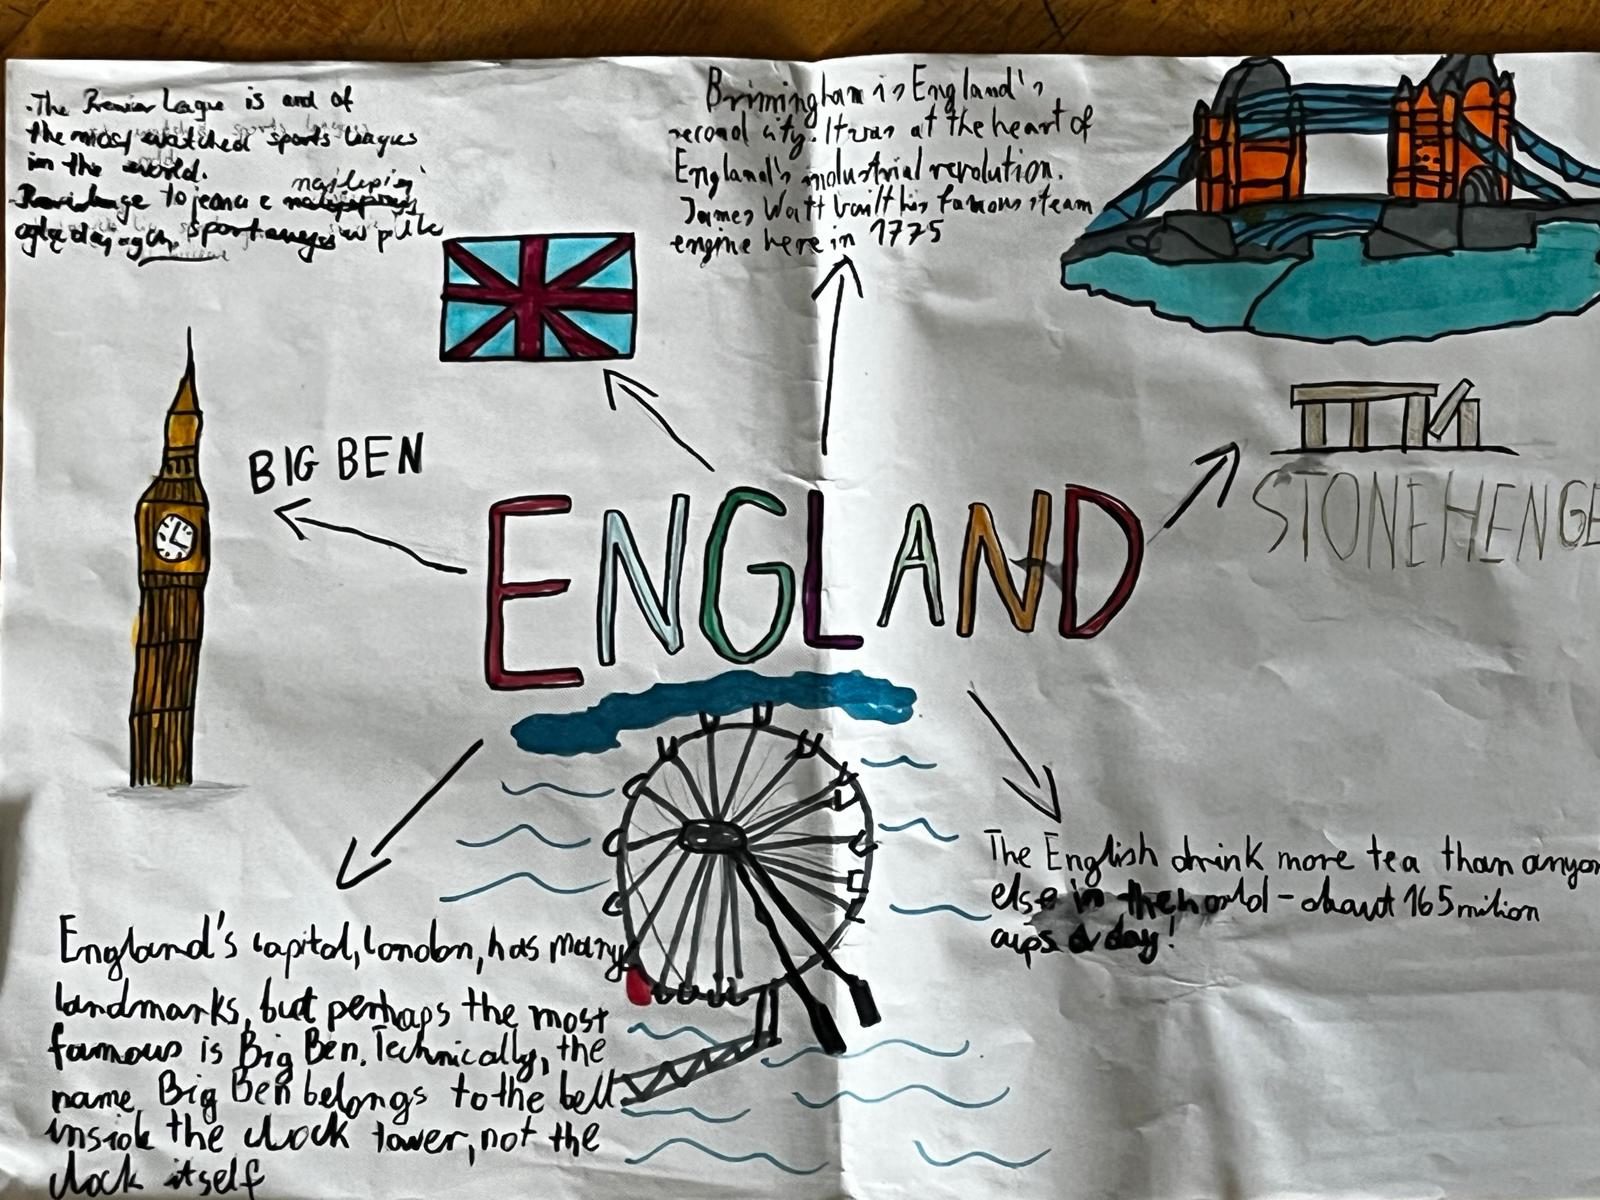 .The Premier League is and of
the most watched sports leagues
in the world.
to jeana e najlepiej
oglądających sportowych w piłke
Brimingham is England's
second city. It was at the heart of
England's industrial revolution.
James Watt built his famous steam
engine here in 1775
BIG BEN
ENGLAND
STONEHENGE
The English drink more tea than anyon
else in the world - about 165 milion
cups a day!
England's capital, London, has many
landmarks, but perhaps the most
famous is Big Ben. Technically, the
name Big Ben belongs to the bell
inside the clock tower, not the
clock itself